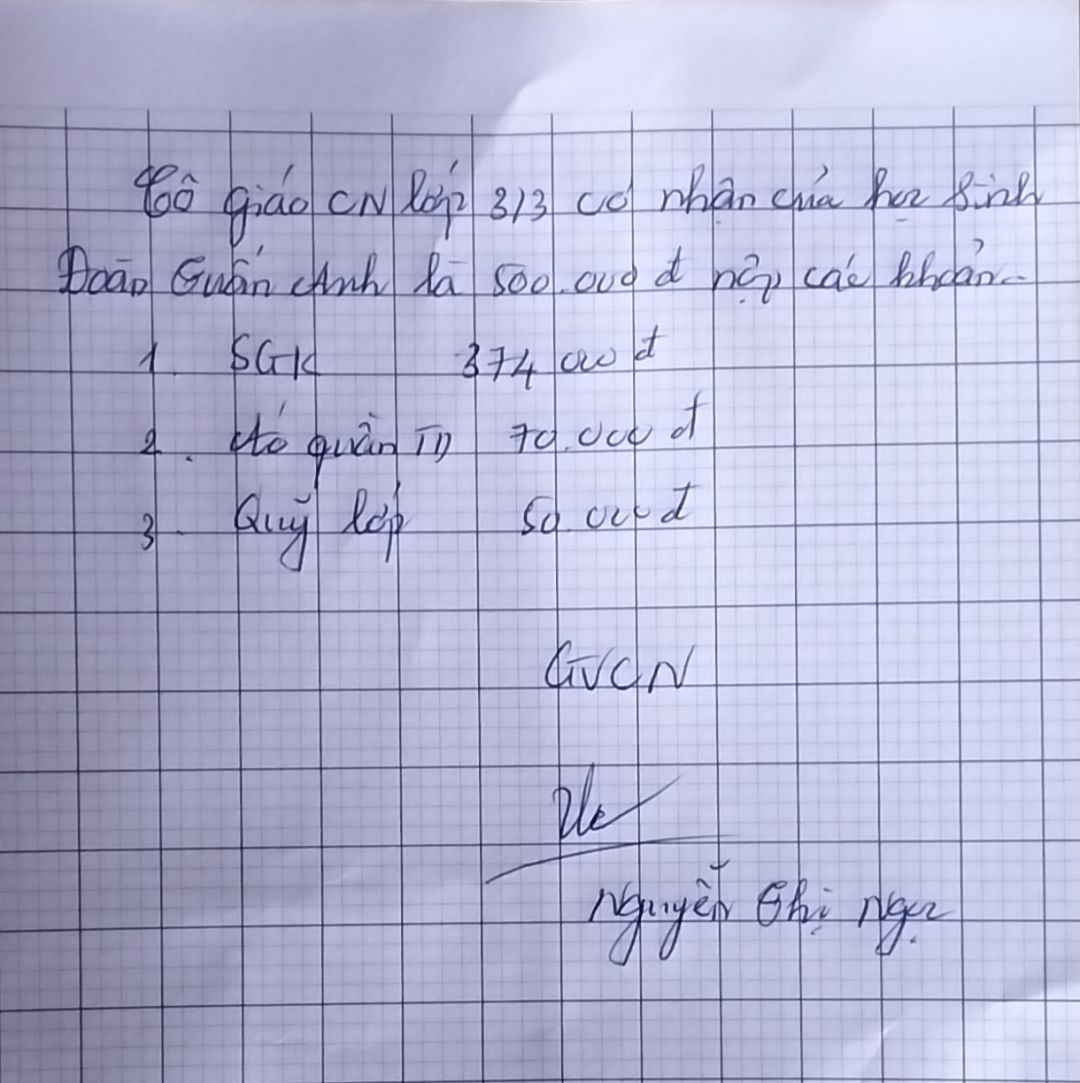 Cô giáo CN lớp 3/3 có nhận của học sinh
Đoàn Tuấn Anh là 500.000 đ nộp các khoản.
1. SGK 374 000 đ
2. Áo quần TD 70.000 đ
3. Quỹ lớp 50.000 đ
GVCN
Nguyễn Thị Ngọc